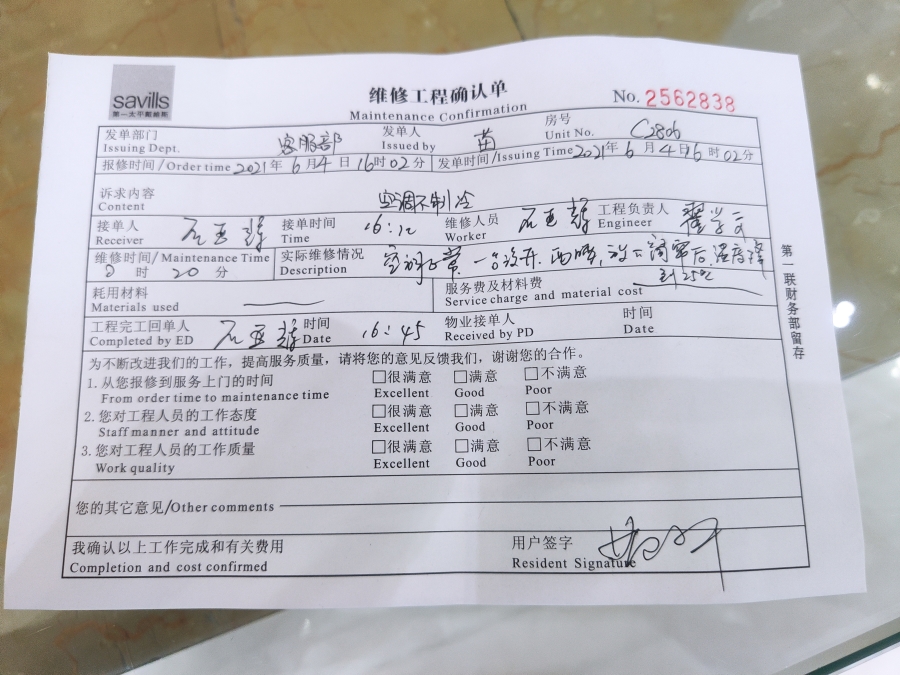 savills
第一太平戴维斯
维修工程确认单
Maintenance Confirmation
No. 2562838
发单部门 客服部 发单人 苗 房号 C2806
Issuing Dept. Issued by Unit No.
报修时间/Order time 2021年6月4日16时02分 发单时间/Issuing Time 2021年6月4日16时02分
诉求内容 空调不制冷
Content
接单人 接单时间 16:12 维修人员 工程负责人
Receiver Time Worker Engineer
维修时间/Maintenance Time 实际维修情况
0时20分 Description 一台没开 后,温度降
到25℃
耗用材料 服务费及材料费
Materials used Service charge and material cost
工程完工回单人 时间 16:45 物业接单人 时间
Completed by ED Date Received by PD Date
为不断改进我们的工作，提高服务质量，请将您的意见反馈我们，谢谢您的合作。
1.从您报修到服务上门的时间 □很满意 □满意 □不满意
From order time to maintenance time Excellent Good Poor
2.您对工程人员的工作态度 □很满意 □满意 □不满意
Staff manner and attitude Excellent Good Poor
3.您对工程人员的工作质量 □很满意 □满意 □不满意
Work quality Excellent Good Poor
您的其它意见/Other comments
我确认以上工作完成和有关费用 用户签字
Completion and cost confirmed Resident Signature
第一联财务部留存